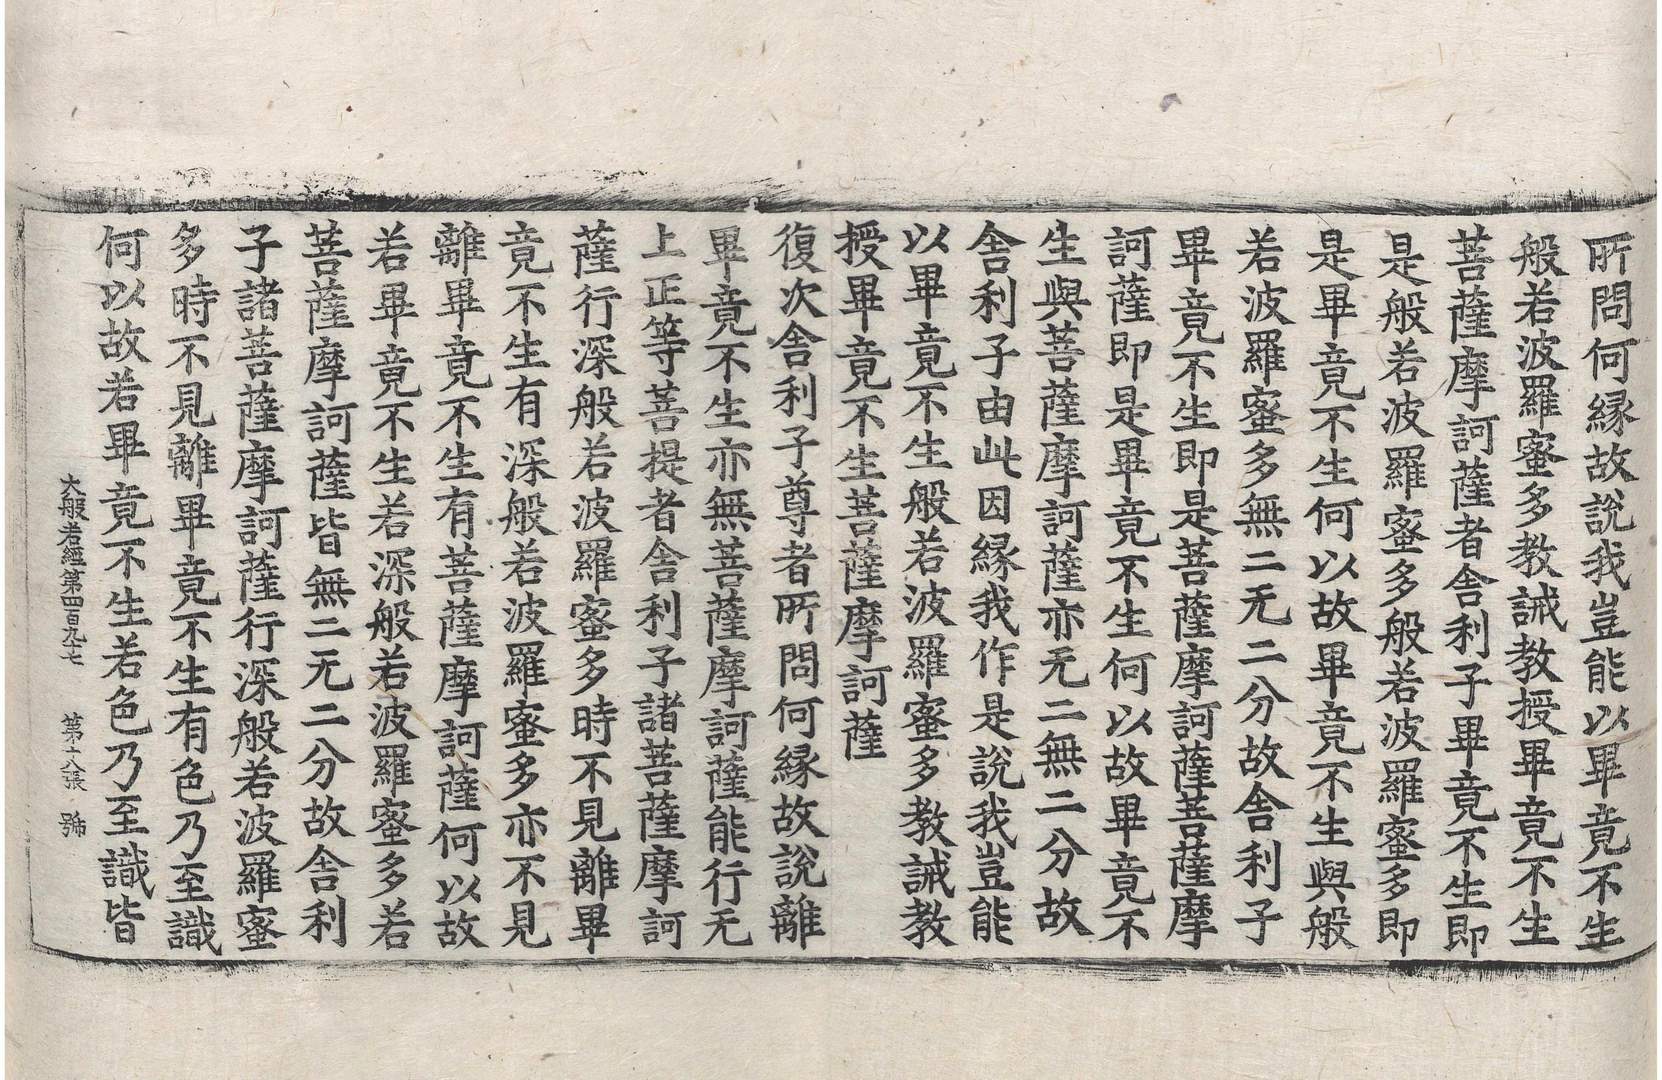 所問何縁故說我豈能以畢竟不生
般若波羅蜜多教誡教授畢竟不生
菩薩摩訶薩者舍利子畢竟不生即
是般若波羅蜜多般若波羅蜜多即
是畢竟不生何以故畢竟不生與般
若波羅蜜多無二无二分故舍利子
畢竟不生即是菩薩摩訶薩菩薩摩
訶薩即是畢竟不生何以故畢竟不
生與菩薩摩訶薩亦无二無二分故
舍利子由此因縁我作是說我豈能
以畢竟不生般若波羅蜜多教誡教
授畢竟不生菩薩摩訶薩
復次舍利子尊者所問何縁故說離
畢竟不生亦無菩薩摩訶薩能行无
上正等菩提者舍利子諸菩薩摩訶
薩行深般若波羅蜜多時不見離畢
竟不生有深般若波羅蜜多亦不見
離畢竟不生有菩薩摩訶薩何以故
若畢竟不生若深般若波羅蜜多若
菩薩摩訶薩皆無二无二分故舍利
子諸菩薩摩訶薩行深般若波羅蜜
多時不見離畢竟不生有色乃至識
何以故若畢竟不生若色乃至識皆
大般若經第四百九十七 第十八張 號